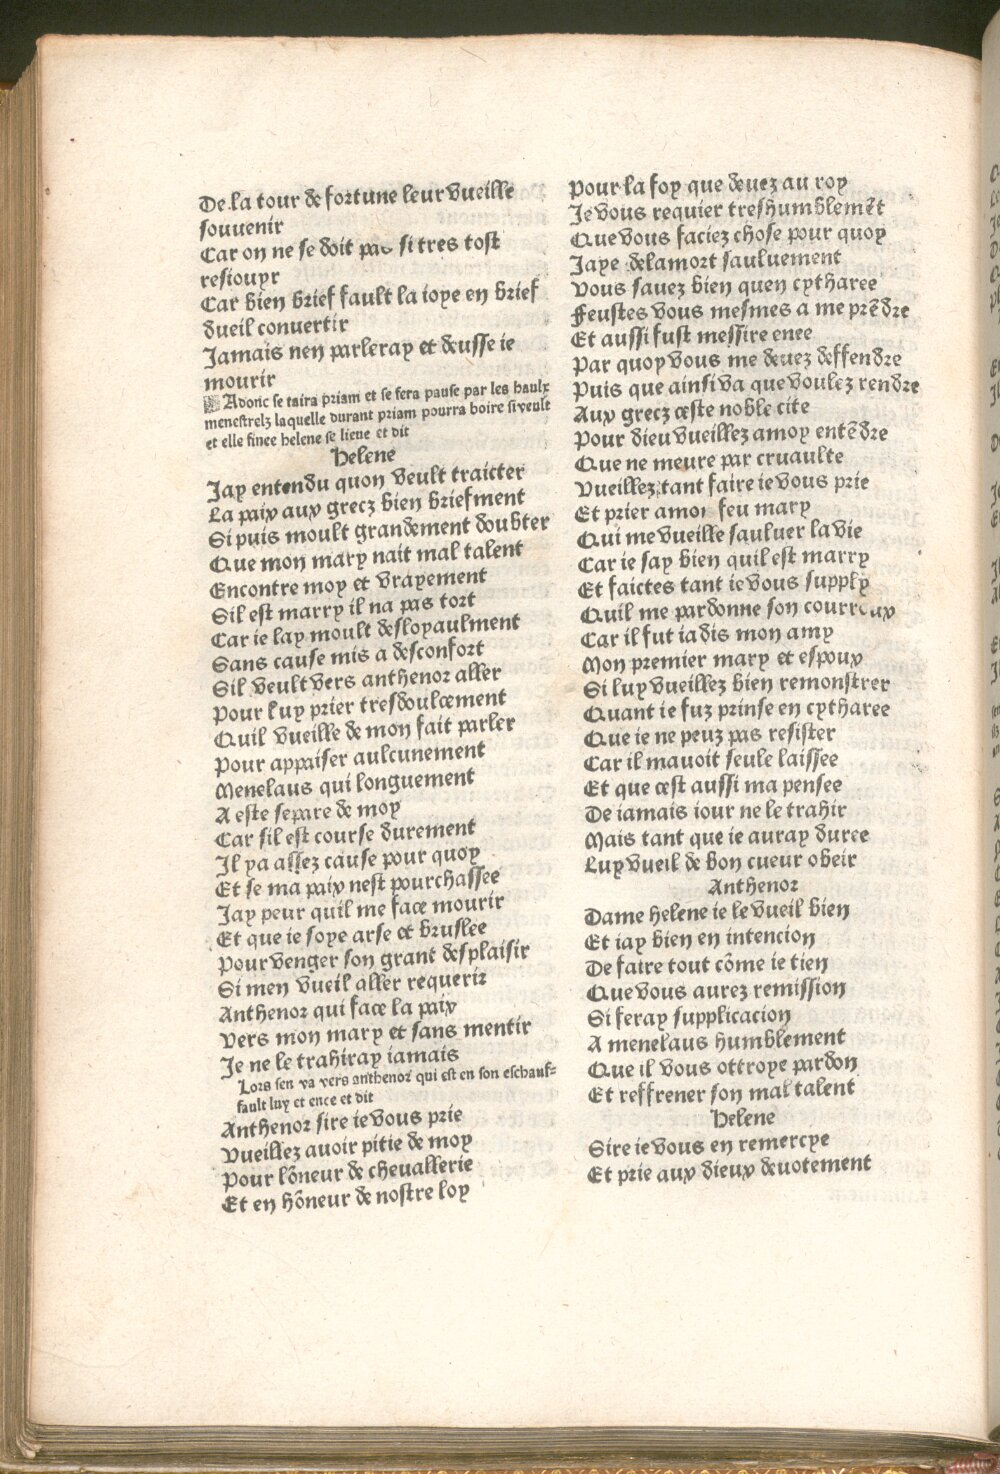 De la tour de fortune leur vueille
souuenir
Car on ne se doit pas si tres tost
resiouyr
Car bien brief fault la ioye en brief
dueil conuertir
Jamais nen parleray et deusse ie
mourir
Adonc se taira priam et se fera pause par les haulx
menestrelz laquelle durant priam pourra boire si veult
et elle finee helene se lieue et dit
Helene
Jay entendu quon veult traicter
La paix aux grecz bien briefment
Si puis moult grandement doubter
Que mon mary nait mal talent
Encontre moy et vrayement
Sil est marry il na pas tort
Car ie lay moult desloyaulment
Sans cause mis a desconfort
Sil veult vers anthenor aller
Pour luy prier tresdoulcement
Quil vueille de mon fait parler
Pour appaiser aulcunement
Menelaus qui longuement
A este separe de moy
Car sil est course durement
Il ya assez cause pour quoy
Et se ma paix nest pourchassee
Jay peur quil me face mourir
Et que ie soye arse et bruslee
Pour venger son grant desplaisir
Si men vueil aller requerir
Anthenor qui face la paix
Vers mon mary et sans mentir
Je ne le trahiray iamais
Lors sen va vers anthenor qui est en son eschauf-
fault luy et enee et dit
Anthenor sire ie vous prie
Vueillez auoir pitie de moy
Pour lõneur de cheuallerie
Et en hõneur de nostre loy
Pour la foy que deuez au roy
Je vous requier treshumblemẽt
Que vous faciez chose pour quoy
Jaye de la mort sauluement
Vous sauez bien quen cytharee
Feustes vous mesmes a me prẽdre
Et aussi fust messire enee
Par quoy vous me deuez deffendre
Puis que ainsi va que voulez rendre
Aux grecz ceste noble cite
Pour dieu vueillez a moy entẽdre
Que ne meure par cruaulte
Vueillez tant faire ie vous prie
Et prier amoy feu mary
Qui me vueille sauluer la vie
Car ie say bien quil est marry
Et faictes tant ie vous supply
Quil me pardonne son courroux
Car il fut iadis mon amy
Mon premier mary et espoux
Si luy vueillez bien remonstrer
Quant ie fuz prinse en cytharee
Que ie ne peuz pas resister
Car il mauoit seule laissee
Et que cest aussi ma pensee
De iamais iour ne le trahir
Mais tant que ie auray duree
Luy vueil de bon cueur obeir
Anthenor
Dame helene ie le vueil bien
Et iay bien en intencion
De faire tout cõme ie tien
Que vous aurez remission
Si feray supplicacion
A menelaus humblement
Que il vous ottroye pardon
Et reffrener son mal talent
Helene
Sire ie vous en remercye
Et prie aux dieux deuotement